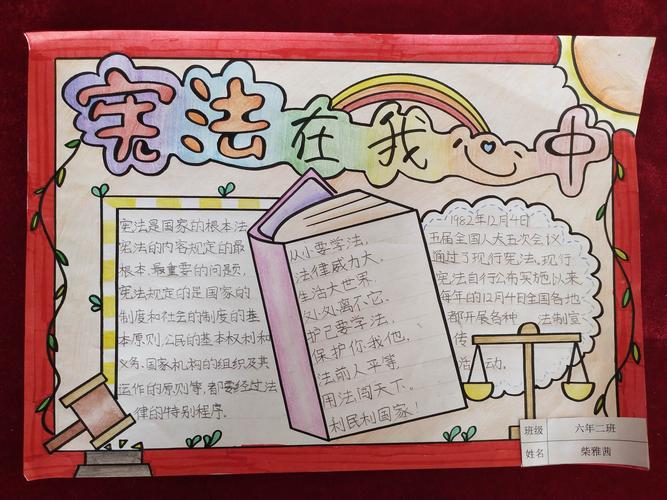 宪法在我心中
宪法是国家的根本法
宪法的内容规定的最
根本、最重要的问题,
宪法规定的是国家的
制度和社会的制度的基
本原则,公民的基本权利和
义务、国家机构的组织及其
运作的原则等,都要经过法
律的特别程序.
从小要学法,
法律威力大、
生活大世界、
处处离不它、
护己要学法,
保护你我他,
法前人平等,
用法闯天下。
利民利国家!
1982年12月4日
五届全国人大五次会议
通过了现行宪法、现行
宪法自行公布实施以来
每年的12月4日全国各地
都开展各种 法制宣
传
活 动.
班级 六年二班
姓名 柴雅茜